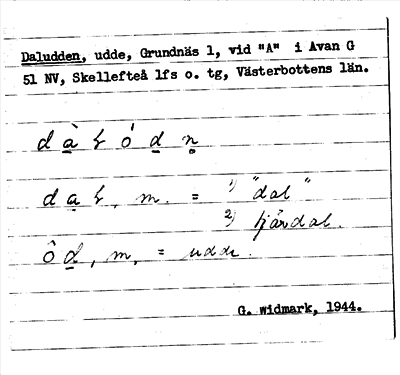 Daludden, udde, Grundnäs 1, vid "A" i Avan G
51 NV, Skellefteå lfs o. tg, Västerbottens län.
d à̲ ł ó d̲ n̥̲
d a̲ ł, m. = 1) "dal"
2) fjärdal.
ô d̲, m. = udde.
G. Widmark, 1944.